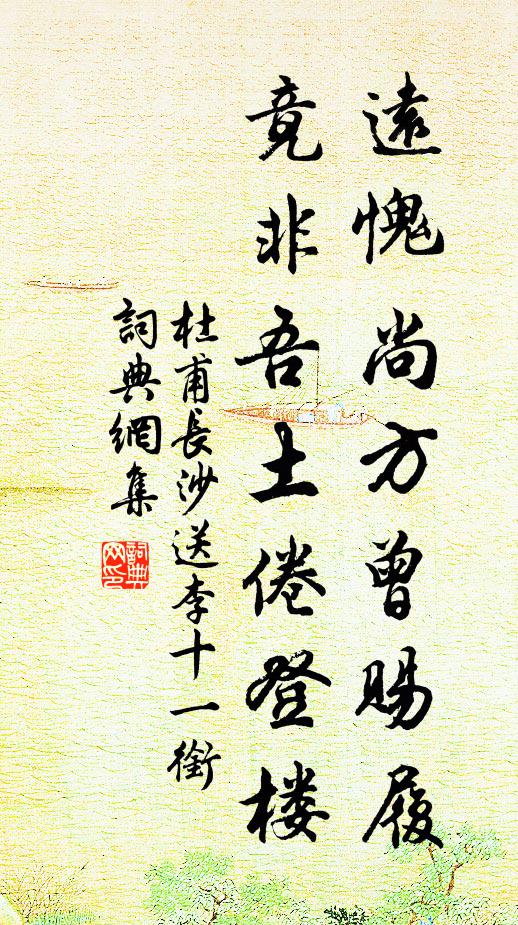 遠愧尚方曾賜履
竟非吾土倦登楼
杜甫長沙送李十一銜
詞典網集
詞典网印